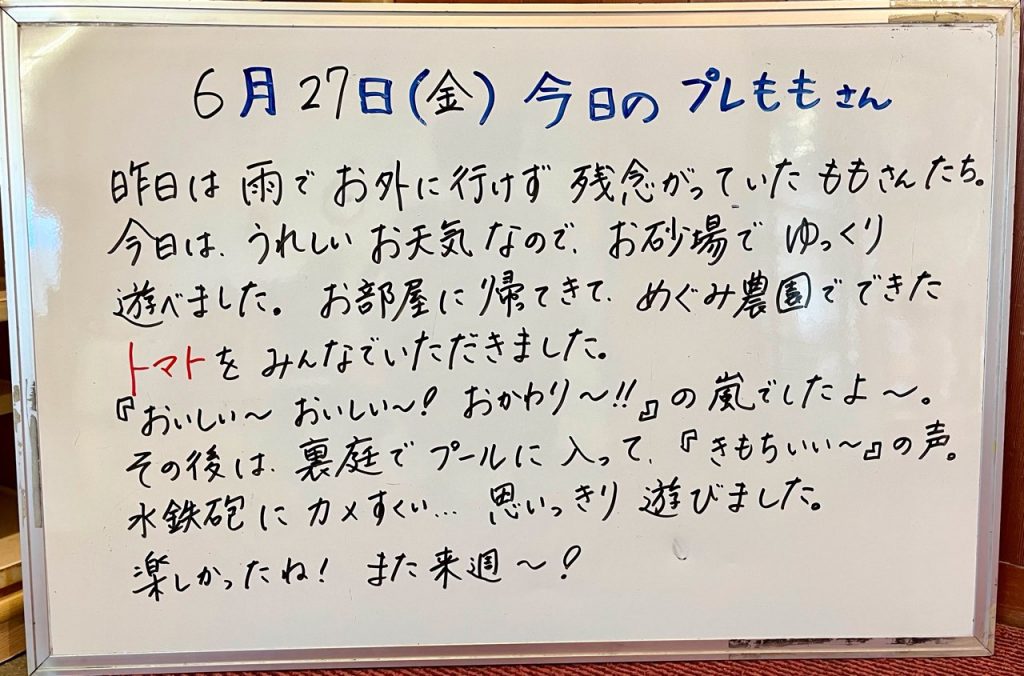 6月27日(金) 今日の プレももさん
昨日は 雨で お外に行けず 残念がっていた ももさんたち。
今日は、うれしい お天気 なので、お砂場で ゆっくり
遊べました。 お部屋に帰ってきて、めぐみ農園でできた
トマトを みんなでいただきました。
『おいしい〜 おいしい〜! おかわり〜!!』の 嵐でしたよ〜。
その後は、裏庭で プールに 入って、『きもちいい〜』の声。
水鉄砲に カメすくい… 思いっきり 遊びました。
楽しかったね! また来週〜!